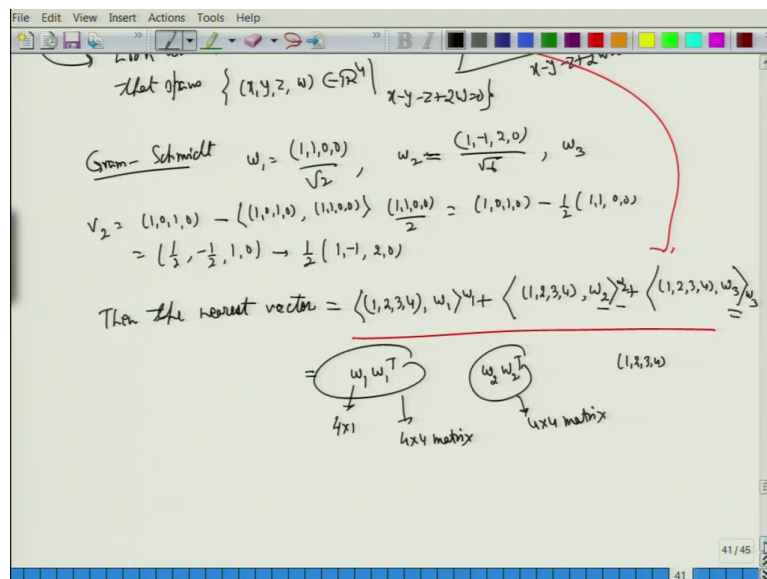 File Edit View Insert Actions Tools Help
that spans { (x,y,z,w) ∈ ℝ⁴ | x-y-z+2w=0}
x-y-z+2w=0
Gram-Schmidt w₁ = (1,1,0,0)/√2 , w₂ = (1,-1,2,0)/√6 , w₃
v₂ = (1,0,1,0) - ⟨(1,0,1,0), (1,1,0,0)⟩ (1,1,0,0)/2 = (1,0,1,0) - 1/2 (1,1,0,0)
= (1/2, -1/2, 1, 0) → 1/2 (1,-1,2,0)
Then the nearest vector = ⟨(1,2,3,4), w₁⟩w₁ + ⟨(1,2,3,4), w₂⟩w₂ + ⟨(1,2,3,4), w₃⟩w₃
= w₁w₁ᵀ w₂w₂ᵀ (1,2,3,4)
4x1 4x4 matrix 4x4 matrix
41 / 45
41